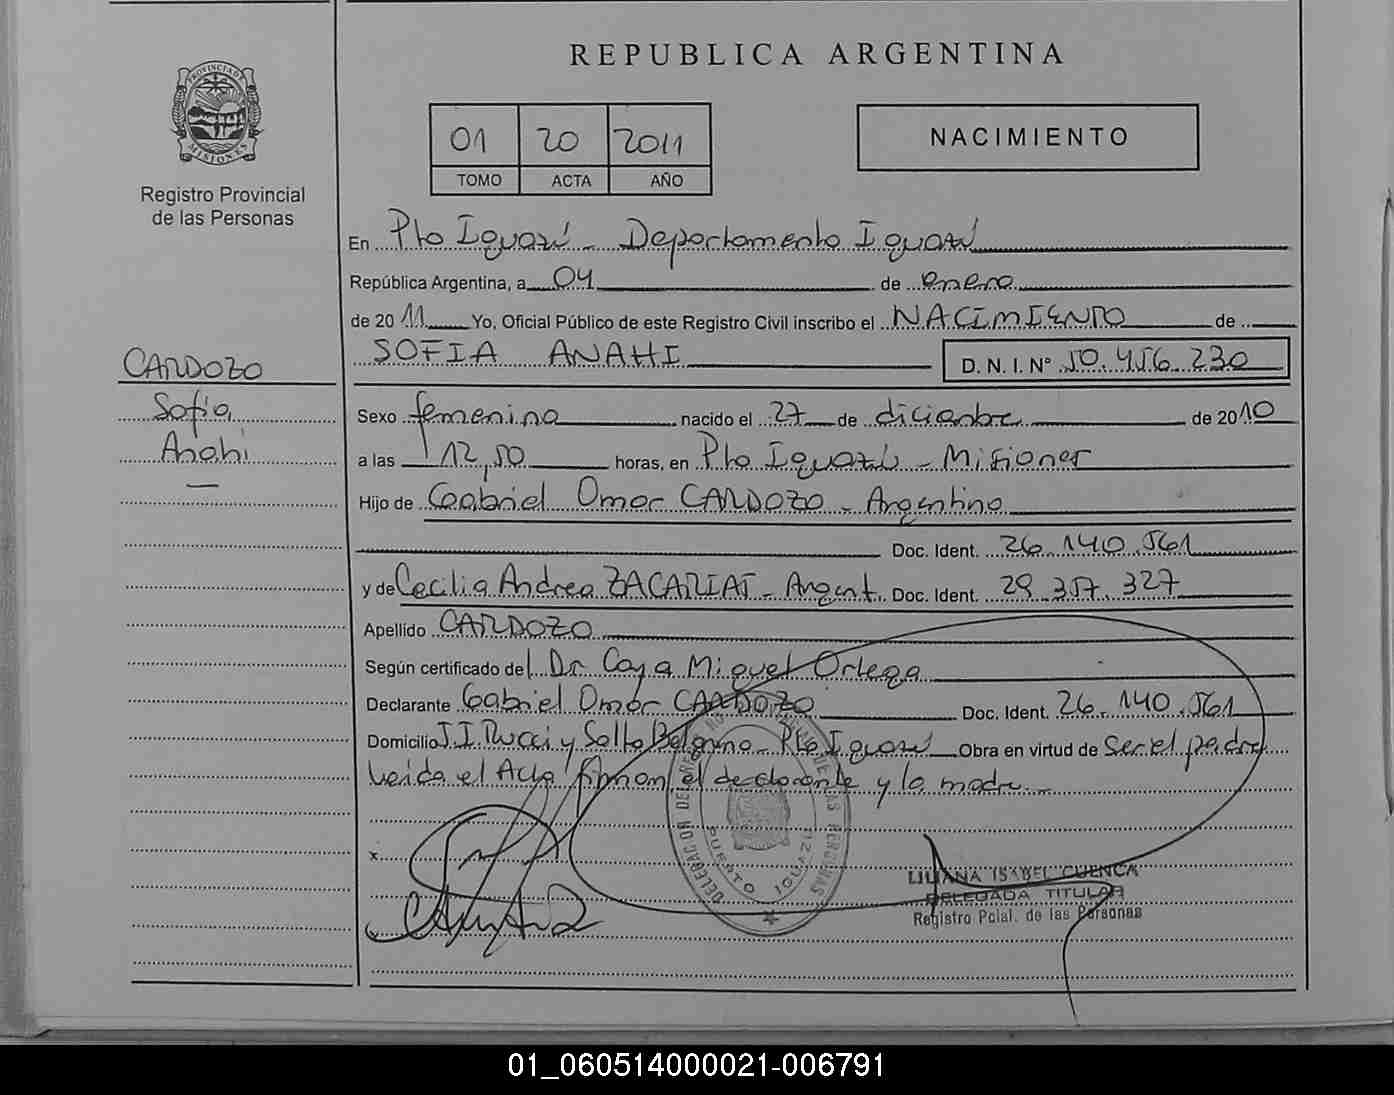 REPUBLICA ARGENTINA
PROVINCIA DE
MISIONES
Registro Provincial
de las Personas
01 20 2011
TOMO ACTA AÑO
NACIMIENTO
En Pto Iguazú - Departamento Iguazú
República Argentina, a 04 de enero
de 2011 Yo, Oficial Público de este Registro Civil inscribo el NACIMIENTO de
SOFIA ANAHI D. N. I. Nº 50.456.230
CARDOZO
Sofia
Anahi
—
Sexo femenino nacido el 27 de diciembre de 2010
a las 12,50 horas, en Pto Iguazú - Misiones
Hijo de Gabriel Omar CARDOZO - Argentino
Doc. Ident. 26.140.561
y de Cecilia Andrea ZACARIAS - Argent. Doc. Ident. 29.357.327
Apellido CARDOZO
Según certificado del Dr Miguel Ortega
Declarante Gabriel Omar CARDOZO Doc. Ident. 26.140.561
Domicilio J.I Rucci y Salto Belgrano - Pto Iguazú Obra en virtud de Ser el padre
Leida el Acta firman el declarante y la madre.-
x
x
DELEGACION DEL REGISTRO PROVINCIAL DE LAS PERSONAS
PUERTO IGUAZU
LILIANA ISABEL CUENCA
DELEGADA TITULAR
Registro Pcial. de las Personas
01_060514000021-006791